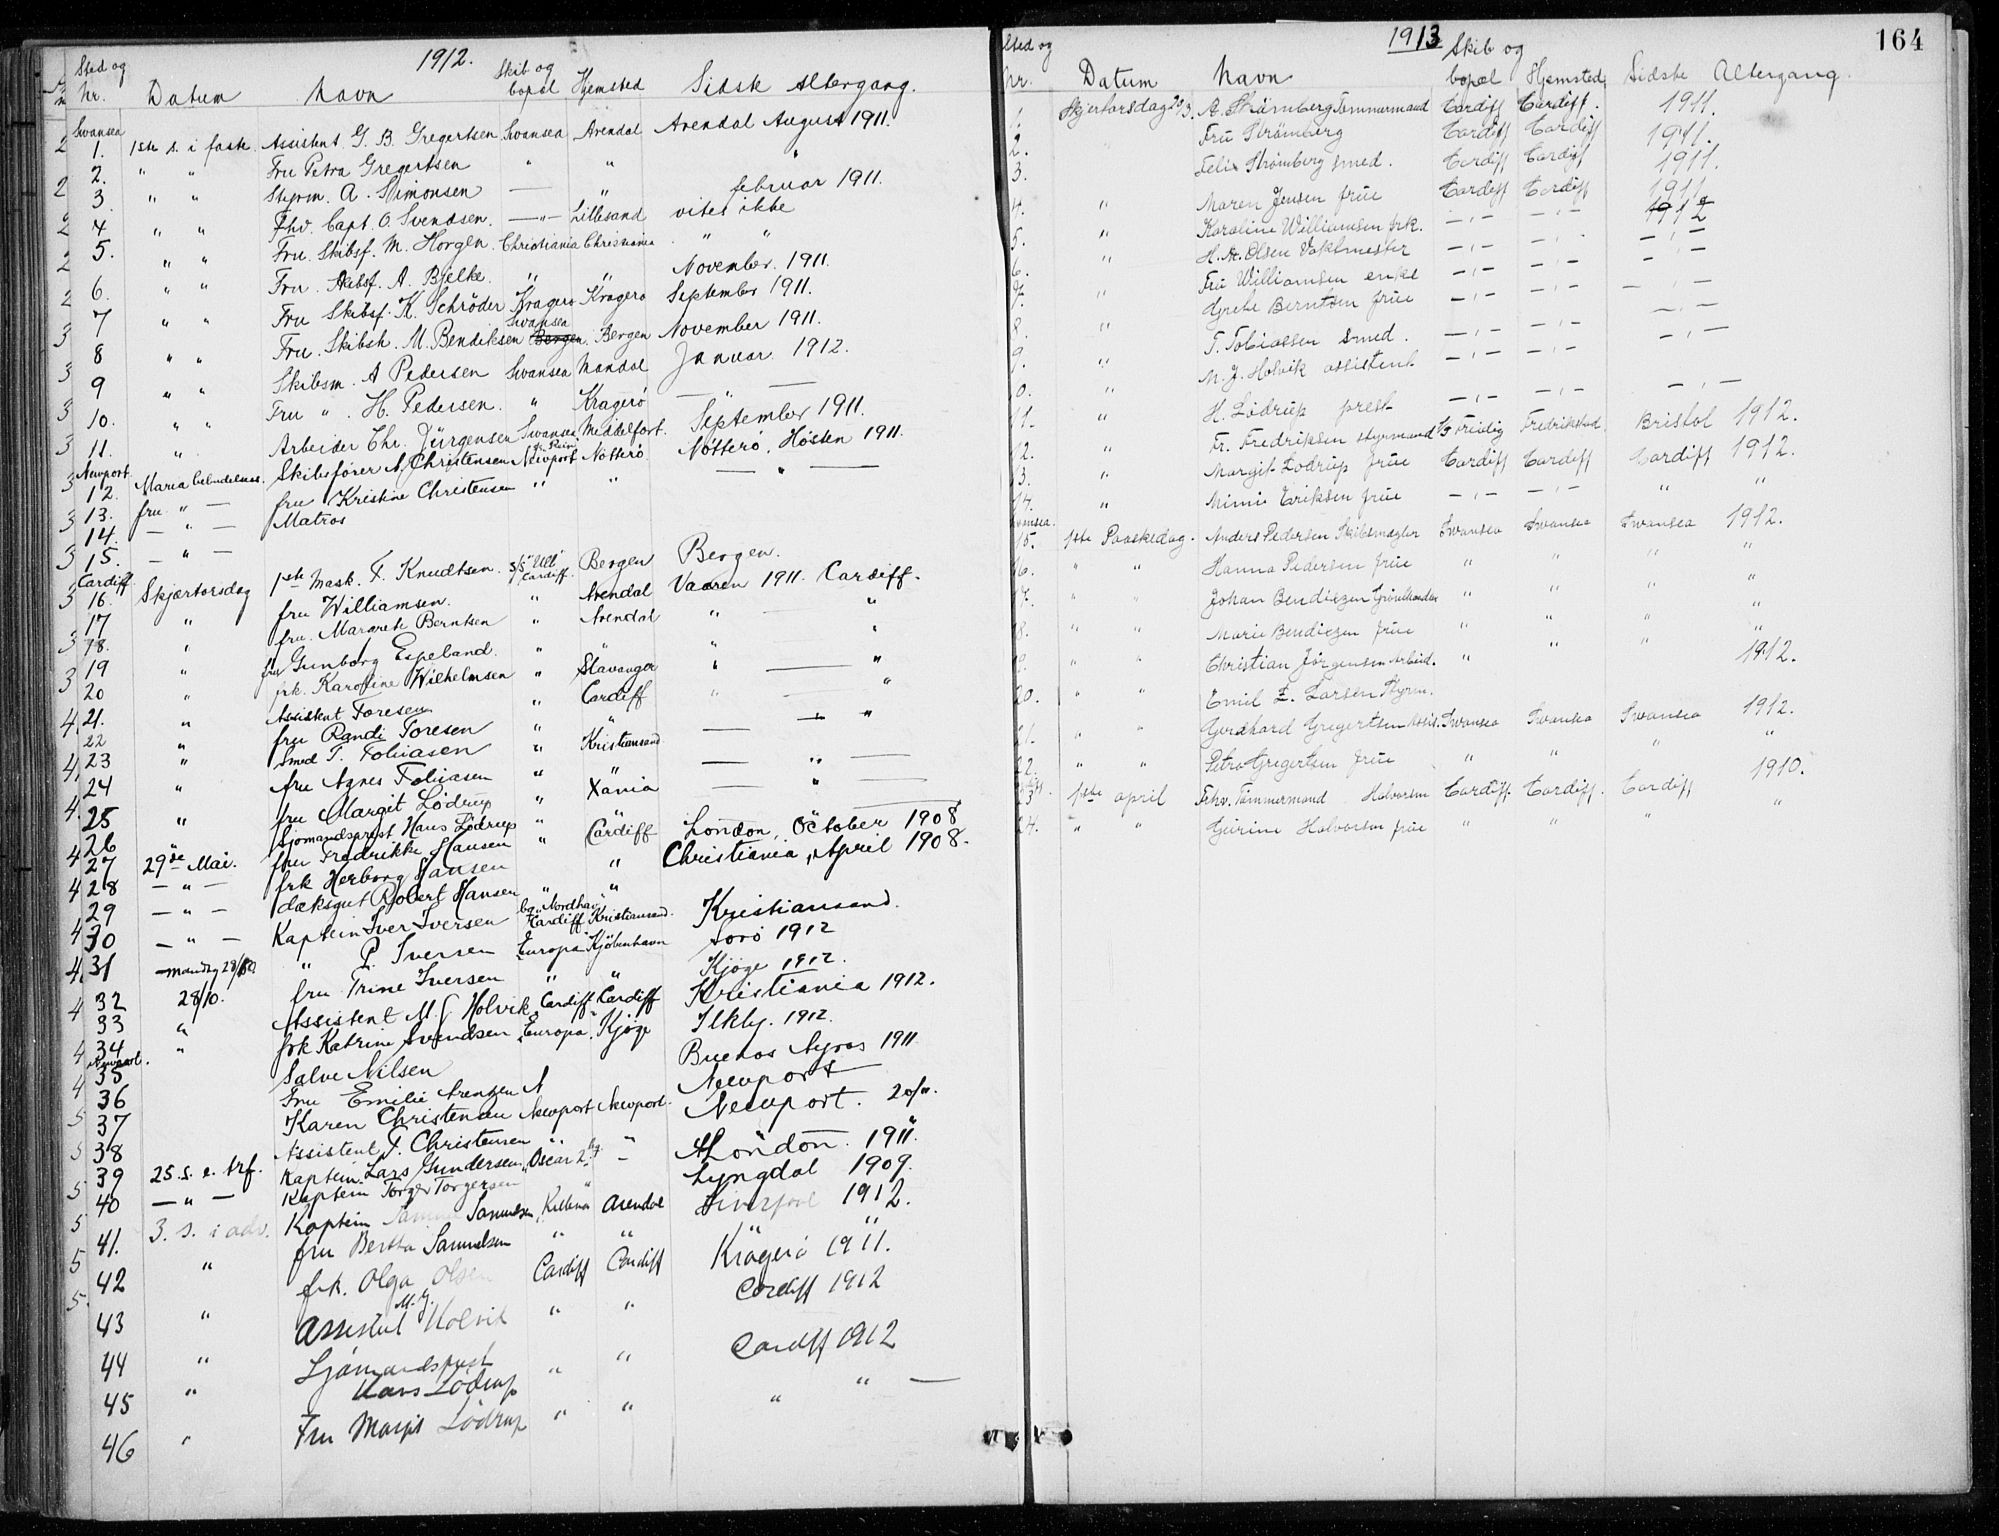 1912.
Sted og Nr. Datum Navn Skib og bopæl Hjemsted Sidste Altergang.
Swansea
1. 1ste s. i faste. Assistent G. B. Gregertsen Swansea Arendal Arendal August 1911.
2. " " Fru Petra Gregertsen " " "
3. " " Styrm. A. Simonsen — " februar 1911.
4 " " Fhv. Capt. O. Svendsen. —"— Lillesand vites ikke
5. " " Fru. Skibsf. M. Horgen. Christiania Christiania " "
6. " " Fru. Skibsf. A. Bjelke. " " November. 1911.
7 " " Fru Skibsf. K. Schröder Kragerø Kragerø September 1911.
8 " " Fru. Skibsh. M. Bendiksen Swansea Bergen. Bergen November 1911.
9 " " Skibsm. A Pedersen Swansea Mandal Januar 1912.
10. " " Fru " H. Pedersen. " Kragerö — " —
11. " Arbeider Chr. Jürgensen Swansea Middelfort. September 1911.
Newport.
12. Maria bebudelses. Skibsfører A. Christensen Newport Nötterö Nötterö, Høsten 1911.
13. fru " — fru Kristine Christensen " " — " —
14. — " — Matros
15. — " —
Cardiff
16. Skjærtorsdag 1ste Mask. F. Knudtsen. S/S "Ull" Cardiff. Bergen Bergen.
17 " fru Williamsen. " Arendal Vaaren 1911. Cardiff.
18. " fru. Margrete Berntsen " Arendal " — "
19 " fru Gunborg Espeland. " " " "
20 " frk. Karoline Wilhelmsen " Stavanger " — "
21. " Assistent Toresen " Cardiff " "
22 " fru Randi Toresen " " — " "
23 " Smed T. Tobiasen " Kristiansand —
24 " fru Agnes Tobiasen " " — " —
25 " fru Margit Lödrup " Xania — " —
26 Sjømandsprest Hans Lödrup " " —
27 29de Mai. fru Fredrikke Hansen " Cardiff London, October 1908
28 — " — frk Herborg Hansen " Christiania, April 1908.
29 — " — dæksgut Robert Hansen " "
30 — " — Kaptein Iver Iversen bg "Nordhav" Cardiff Kristiansand. Kristiansand.
31 mandag 28/10 " P. Iversen Europa Kjöbenhavn Sorö 1912
32 28/10. fru Trine Iversen " " Kjöge 1912.
33 " Assistent M. J Holvik Cardiff Cardiff Kristiania 1912.
34 " frk Katrine Svendsen "Europa" Kjöge Ilkly. 1912.
35 Salve Nilsen Buenos Ayros 1911
36 Fru Emilie Arentzen N Newport
37 Karen Christensen Newport Newport. Newport.
38 Assistent F. Christensen " "
39 25. s. e. tref. Kaptein. Lars Gundersen "Oscar 2" — London. 1911.
40 — " — Kaptein Torger Torgersen Lyngdal 1909.
41. 3. s. i adv. Kaptein Samuelsen, Arendal Liverpool 1912.
42 " fru Bertha Samuelsen " " "
43 " frk. Olga Olsen Cardiff Cardiff Kragerö 1911.
44 " Assistent M. J. Holvik " " Cardiff 1912
45 " Sjömandsprest Hans Lödrup " " Cardiff 1912
46 " Fru Margit Lödrup " " " " —
164
1913
Sted og Nr. Datum Navn Skib og bopæl Hjemsted Sidste Altergang.
1. Skjertorsdag 20/3. A. Strømberg Tømmermand Cardiff Cardiff. 1911.
2. " Fru Strømberg Cardiff Cardiff 1911.
3. Felix Strømberg smed. Cardiff Cardiff 1911.
4. " Maren Jensen frue Cardiff Cardiff 1911
5. " Karoline Williamsen frk. — " — — " — 1912
6. " H. A. Olsen Vaktmester — " — — " — — " —
7. " Fru Williamsen enke — " — — " — — " —
8. " Grete Berntsen frue — " — — " — — " —
9. " T. Tobiassen Smed. — " — — " — — " —
10. " M. J. Holvik assistent — " — — " — — " —
11. " H. Lødrup prest — " — — " — — " —
12. " Fr. Fredriksen styrmand S/S Freidig Fredrikstad Bristol 1912.
13. " Margit Lodrup frue Cardiff Cardiff Cardiff 1912.
14. " Mimi Eriksen frue — " — — " — " "
Swansea.
15. 1ste Paaskedag. Anders Pedersen Skibsmægler Swansea Swansea Swansea 1912.
16. " " Hanna Pedersen frue " " " "
17. " " Johan Bendixen " " " "
18. " " Marie Bendixen frue " " " "
19. " " Christian Jørgensen Arbeid. " 1912.
20. " " Emil E. Larsen Styrm.
21. " " Gerdhard Gregertsen Assis. Swansea Swansea Swansea 1912.
22. " " Petra Gregertsen frue " " " "
23. 1ste april Frhv. Tømmermand Halvorsen Cardiff. Cardiff. Cardiff 1910.
24. " " Gurine Halvorsen frue " " " "